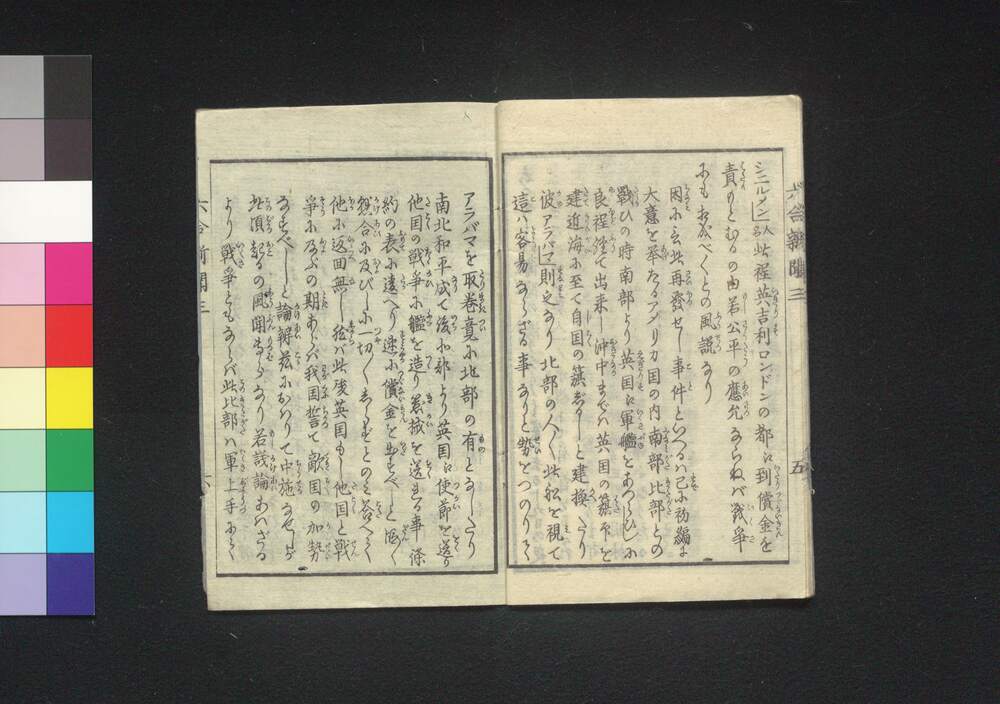 シエルメン人名此程英吉利ロンドンの都に到償金を
責めもとむるの由若公平の應允ならねバ戰爭
にもおよぶべくとの風説なり
因に云此再發せし事件といへるハ已に初編に
大意を挙たるアメリカ国の内南部北部との
戰ひの時南部より英国に軍艦をあつらひしに
良程経て出来し沖中までハ英国の籏章を
建近海に至て自国の籏じるしと建換へたり
彼アラバマ則之なり北部の人々此船を視て
這ハ容易ならざる事なりと勢をつのりて
六合新聞三
五
アラバマを取巻竟に北部の有となしたり
南北和平成て後北部より英国に使節を送り
他国の戦争に艦を造り器械を送れる事條
約の表に違へり速に償金を出すべしと厳く
懸合に及びしに一切しらずとのミ答へて
他に返回無し然バ此後英国もし他国と戦
爭に及ぶの期あらバ我国誓て敵国の加勢
なすべしと論辨茲におハりて中施なせしが
此頃起るの風聞あるなり若議論あハざる
より戦爭ともならバ此北部ハ軍上手にて
六合新聞三
六